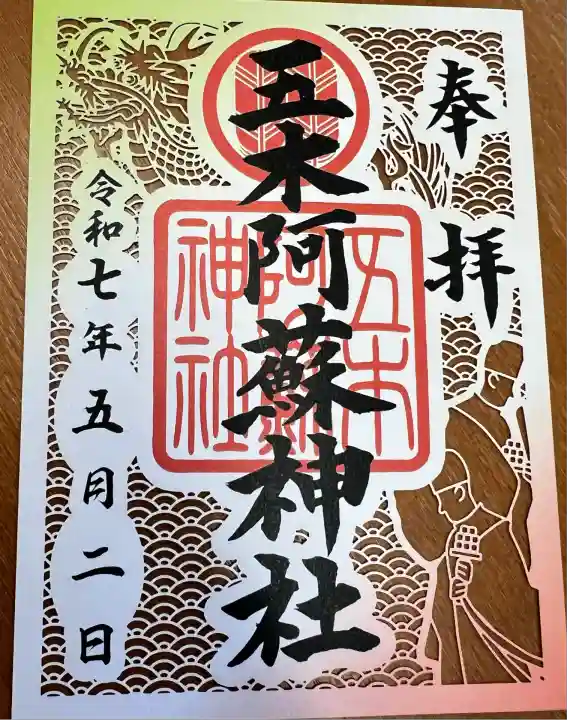 奉拝
五木阿蘇神社
五木
阿蘇
神社
令和七年五月二日